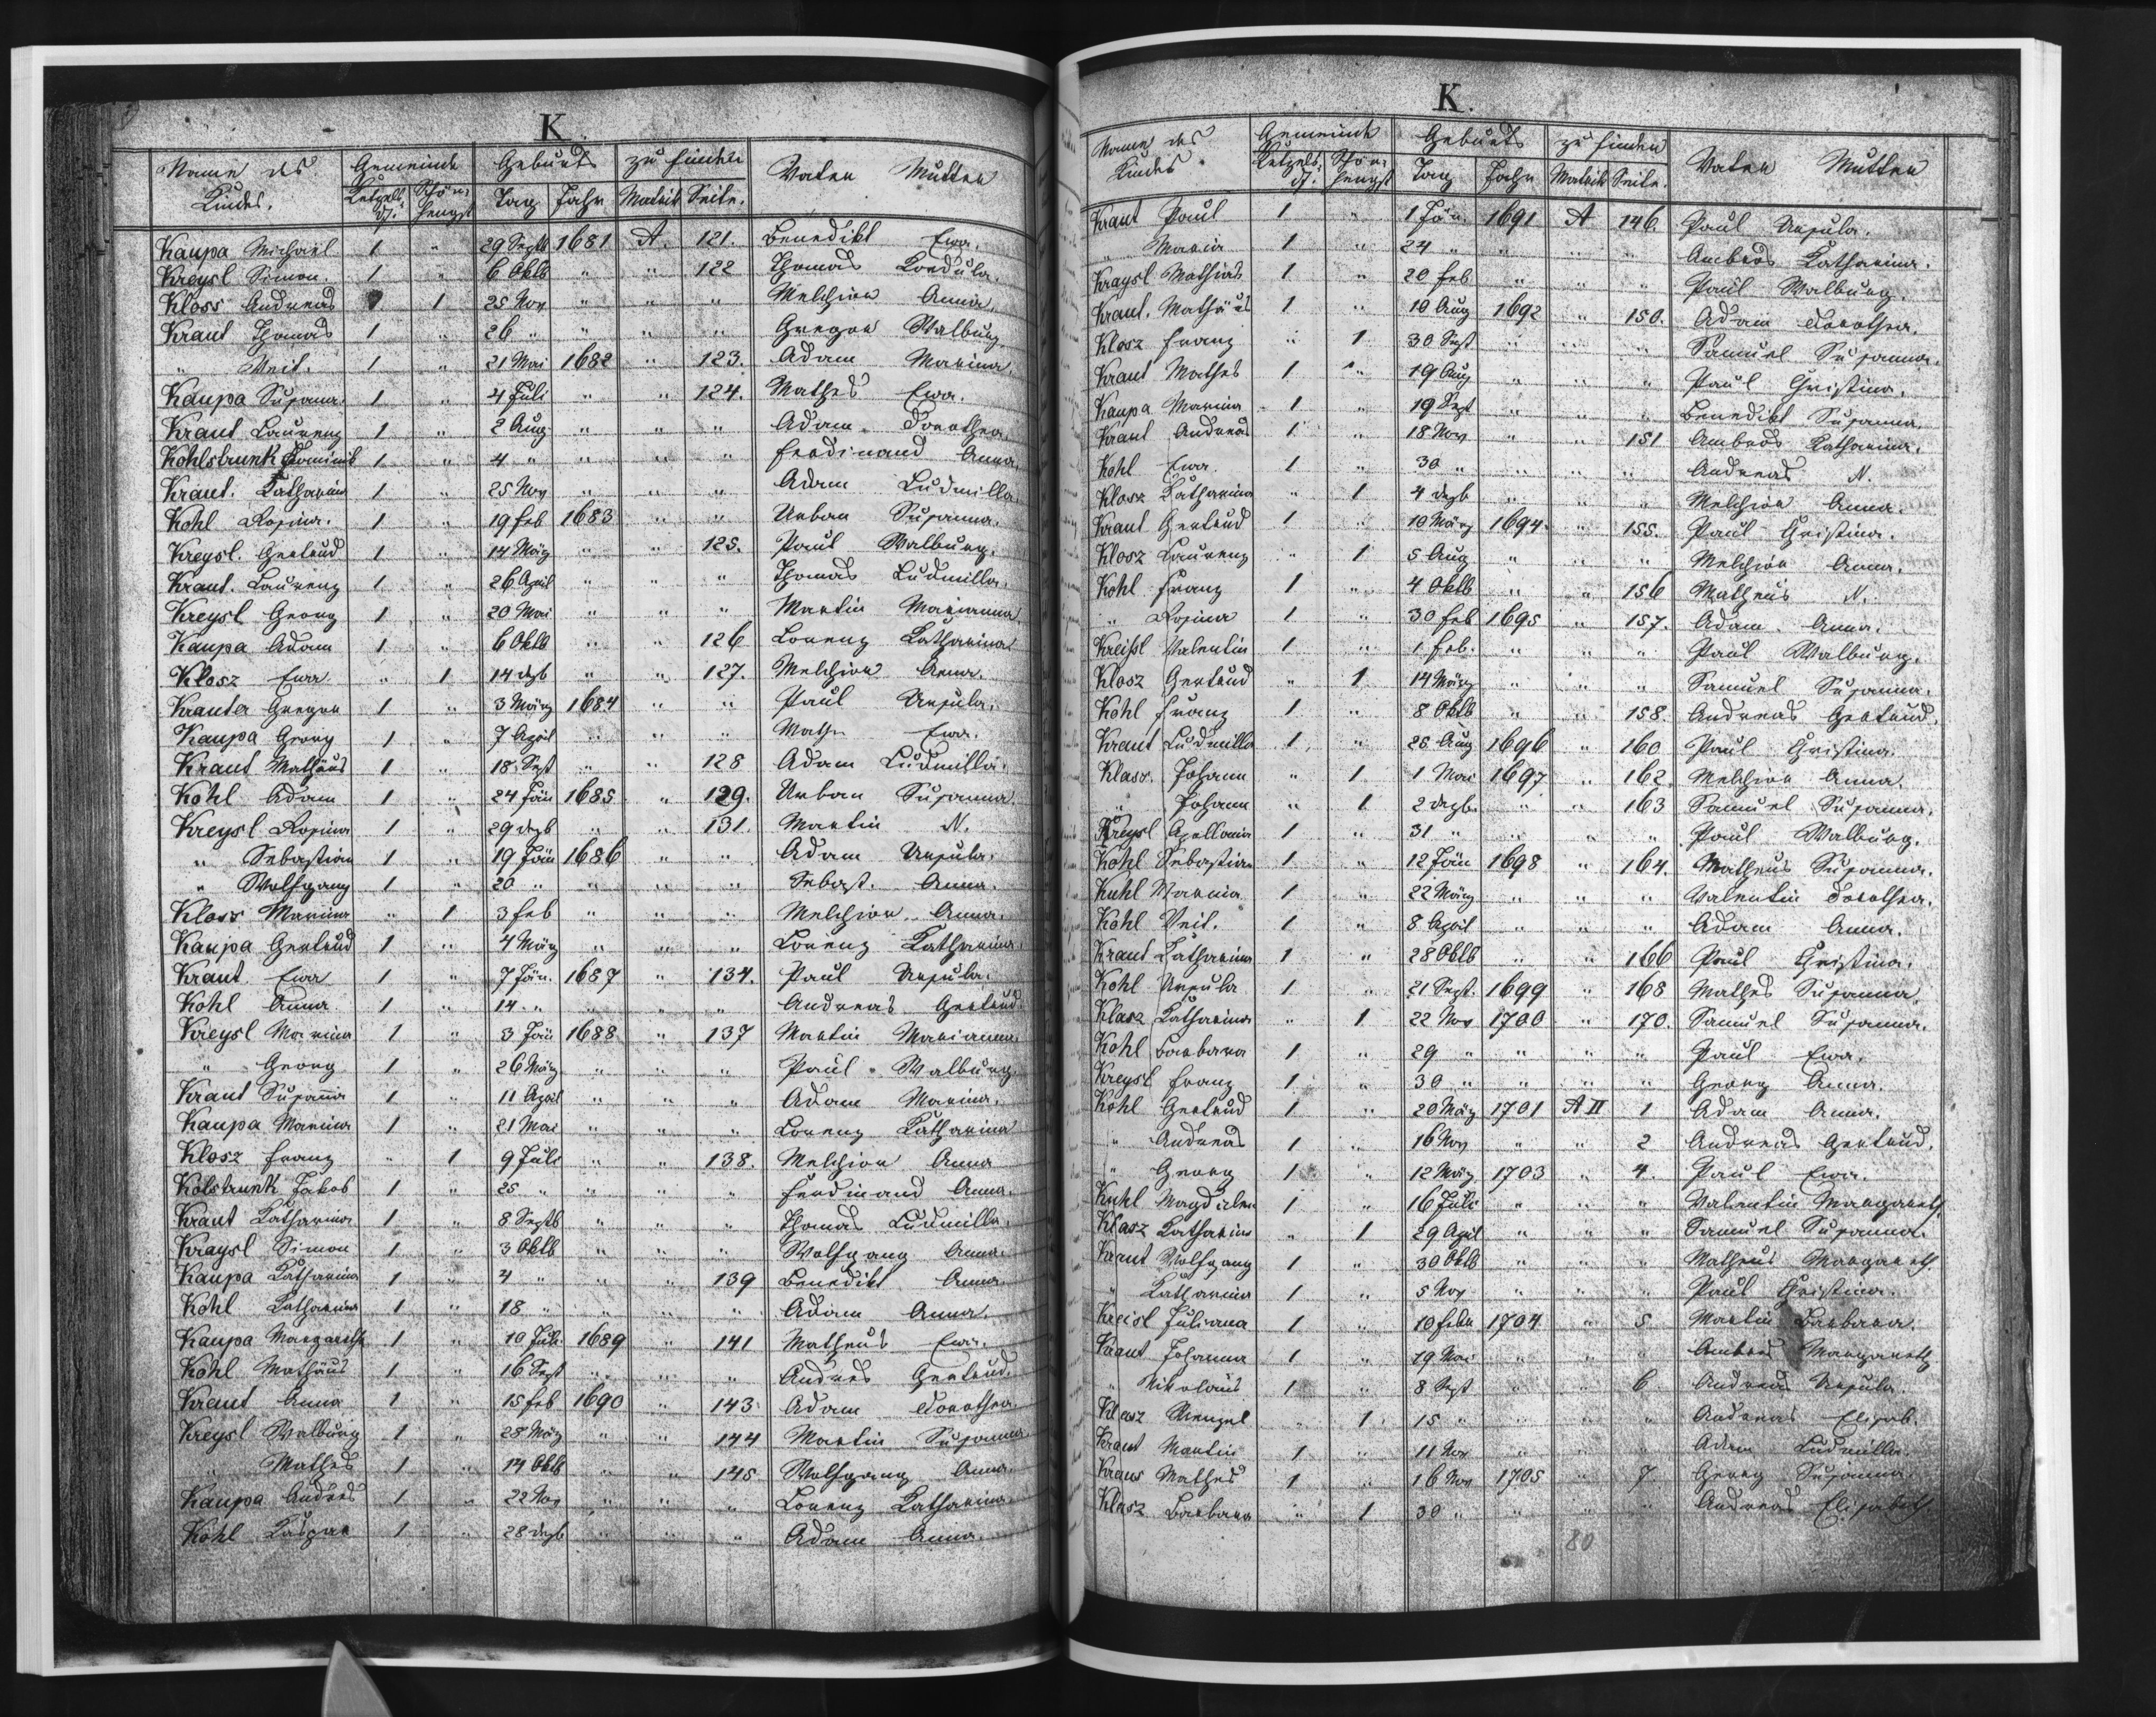 K.
Name des Kindes. Gemeinde Geburts zu finden Vater Mutter
Ketzelsdf. Schönhengst Tag Jahr Matrik Seite.
Kaupa Michael 1 " 29 Septb 1681 A. 121. Benedikt Ewa.
Kreysl Simon. 1 " 6 Oktb " " 122 Thomas Kordula.
Kloss Andreas 1 25 Nov " " " Melchior Anna.
Kraut Thomas 1 " 26 " " " " Gregor Walburg
" Veit. 1 " 21 Mai 1682 " 123. Adam Marina
Kaupa Susana. 1 " 4 Juli " " 124. Mathes Ewa.
Kraut Laurenz 1 " 2 Aug " " " Adam Dorothea.
Kohlstrunk Dominik 1 " 4 " " " " Ferdinand Anna.
Kraut. Katharina 1 " 25 Nov " " " Adam Ludmilla
Kohl Rosina. 1 " 19 Feb 1683 " " Urban Susanna.
Kreysl. Gertrud 1 " 14 März " " 125. Paul Walburg.
Kraut. Laurenz 1 " 26 April " " " Thomas Ludmilla.
Kreysl Georg 1 " 20 Mai " " " Martin Marianna
Kaupa Adam 1 " 6 Oktb " " 126 Lorenz Katharina
Klosz Ewa " 1 14 dezb " " 127. Melchior Anna.
Krauter Gregor 1 " 3 März 1684 " " Paul Ursula.
Kaupa Georg 1 " 7 April " " " Mathes Ewa.
Kraut Mathäus 1 " 18 Sept " " 128 Adam Ludmilla.
Kohl Adam 1 " 24 Jän 1685 " 129. Urban Susanna.
Kreysl Rosina 1 " 29 dezb " " 131. Martin N.
" Sebastian 1 " 19 Jän 1686 " " Adam Ursula.
" Wolfgang 1 " 20 " " " " Sebast. Anna.
Kloss Marina " 1 3 Feb " " " Melchior Anna.
Kaupa Gertrud 1 " 4 März " " " Lorenz Katharina.
Kraut Ewa 1 " 7 Jän. 1687 " 134. Paul Ursula.
Kohl Anna 1 " 14. " " " " Andreas Gertrud.
Kreysl Marina 1 " 3 Jän 1688 " 137 Martin Marianna.
" Georg 1 " 26 März " " " Paul Walburg.
Kraut Susana 1 " 11 April " " " Adam Marina.
Kaupa Marina 1 " 21 Mai " " " Lorenz Katharina
Klosz Franz " 1 9 Juli " " 138. Melchior Anna
Kolstrunk Jakob 1 " 25 " " " " Ferdinand Anna.
Kraut Katharina 1 " 8 Septb " " " Thomas Ludmilla.
Kraysl Simon 1 " 3 Oktb " " " Wolfgang Anna.
Kaupa Katharina 1 " 4 " " " 139 Benedikt Anna
Kohl Katharina 1 " 18 " " " " Adam Anna.
Kaupa Margareth 1 " 10 Juli 1689 " 141 Matheus Ewa.
Kohl Mathäus 1 " 16 Sept " " " Andres Gertrud.
Kraut Anna 1 " 15 Feb 1690 " 143 Adam Dorothea
Kreysl Walburg 1 " 28 März " " 144 Martin Susanna
" Mathes 1 " 14 Oktb " " 145 Wolfgang Anna.
Kaupa Andres 1 " 22 Nov " " " Lorenz Katharina
Kohl Kaspar 1 " 28 dezb " " " Adam Anna.
K.
Name des Kindes. Gemeinde Geburts zu finden Vater Mutter
Ketzelsdf. Schönhengst Tag Jahr Matrik Seite.
Kraut Paul 1 " 1 Jän. 1691 A 146. Paul Ursula.
" Marina 1 " 24 " " " " Ambros Katharina.
Kraysl Mathias 1 " 20 Feb " " " Paul Walburg.
Kraut. Mathäus 1 " 10 Aug 1692 " 150. Adam Dorothea.
Klosz Franz " 1 30 Sept " " " Samuel Susanna.
Kraut Mathes 1 " 19 Aug " " " Paul Christina.
Kaupa Marina 1 " 19 Sept " " " Benedikt Susanna.
Kraut Andreas 1 " 18 Nov " " 151 Ambros Katharina.
Kohl Ewa 1 " 30 " " " " Andreas N.
Klosz Katharina " 1 4 dezb " " " Melchior Anna.
Kraut Gertrud 1 " 10 März 1694. " 155. Paul Christina.
Klosz Laurenz " 1 5 Aug " " " Melchior Anna.
Kohl Franz 1 " 4 Oktb " " 156 Matheus N.
" Rosina 1 " 30 Feb 1695 " 157. Adam Anna.
Kreisl Valentin 1 " 1 Feb. " " " Paul Walburg.
Klosz Gertrud " 1 14 März " " " Samuel Susanna.
Kohl Franz 1 " 8 Oktb " " 158. Andreas Gertrud.
Kraut Ludmilla 1 " 25 Aug 1696 " 160 Paul Christina.
Klasz. Johann " 1 1 Mai 1697 " 162. Melchior Anna.
" Johann " 1 2 dezb. " " 163 Samuel Susanna.
Kreysl Apollonia 1 " 31 " " " " Paul Walburg.
Kohl Sebastian 1 " 12 Jän 1698 " 164. Matheus Susanna.
Kuhl Marina 1 " 22 März " " " Valentin Dorothea.
Kohl Veit. 1 " 8 April " " " Adam Anna.
Kraut Katharina 1 " 28 Oktb " " 166 Paul Christina.
Kohl Ursula 1 " 21 Sept. 1699 " 168 Mathes Susanna.
Klasz Katharina " 1 22 Nov 1700 " 170. Samuel Susanna.
Kohl Barbara 1 " 29 " " " " Paul Ewa.
Kreysl Franz 1 " 30 " " " " Georg Anna.
Kohl Gertrud 1 " 20 März 1701 A II 1 Adam Anna.
" Andreas 1 " 16 Nov " " 2 Andreas Gertrud.
" Georg 1 " 12 März 1703 " 4. Paul Ewa.
Kuhl Magdalen 1 " 16 Juli " " " Valentin Margareth.
Klasz Katharina " 1 29 April " " " Samuel Susanna.
Kraut Wolfgang 1 " 30 Oktb " " " Matheus Margareth
" Katharina 1 " 5 Nov " " " Paul Christina.
Kreisl Juliana 1 " 10 Febr 1704 " 5 Martin Barbara.
Kraut Johanna 1 " 19 Mai " " " Ambros Margareth
" Nikolaus 1 " 8 Sept " " 6 Andreas Ursula.
Klasz Wenzel " 1 15 " " " " Andreas Elisab.
Kraut Martin 1 " 11 Nov " " " Adam Ludmilla.
Kraus Mathes 1 " 16 Nov 1705 " 7 Georg Susanna
Klasz Barbara " 1 30 " " " " Andreas Elisabeth
80